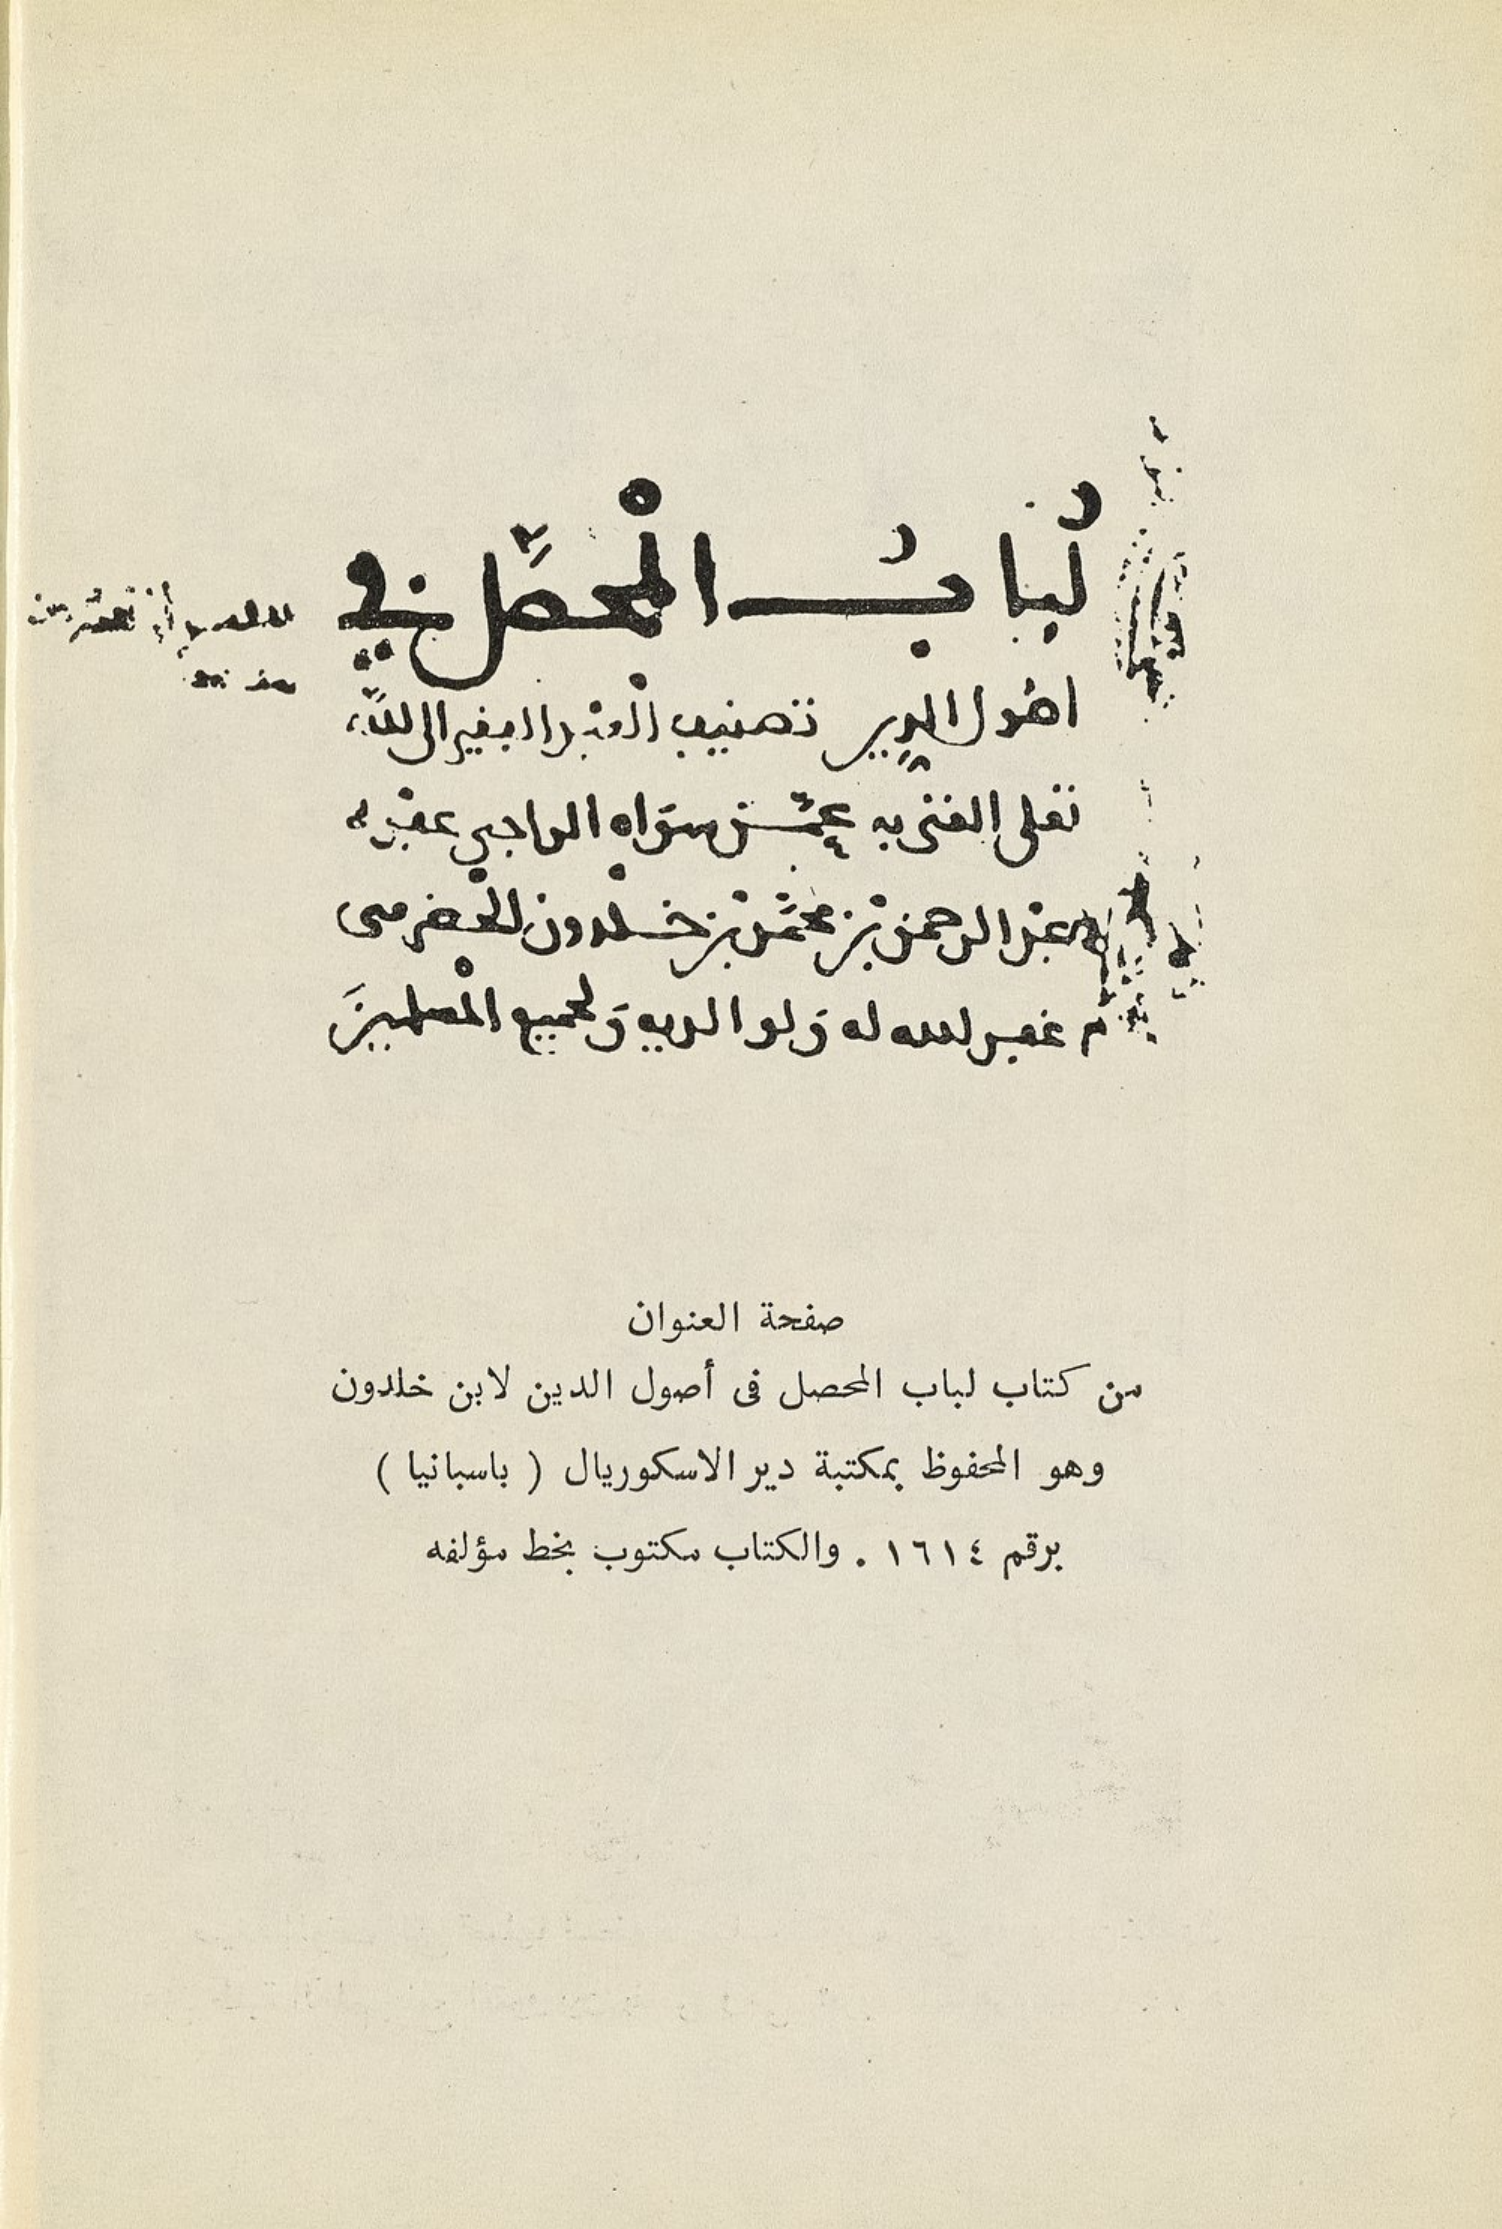 لُبابُ المْحصَّل في
اصُول الدين تصنيف العبْد الفقير الى الله
تعلى الغنى به عمَّن سوَاه الراجي عفْوه
عبْد الرحمن بْن محمَّد بْن خلدون الحْضرمى
غفر الله له وَلوالديه وَلجميع المْسلمينَ
صفحة العنوان
من كتاب لباب المحصل فى أصول الدين لابن خلدون
وهو المحفوظ بمكتبة دير الاسكوريال ( باسبانيا )
برقم ١٦١٤ . والكتاب مكتوب بخط مؤلفه